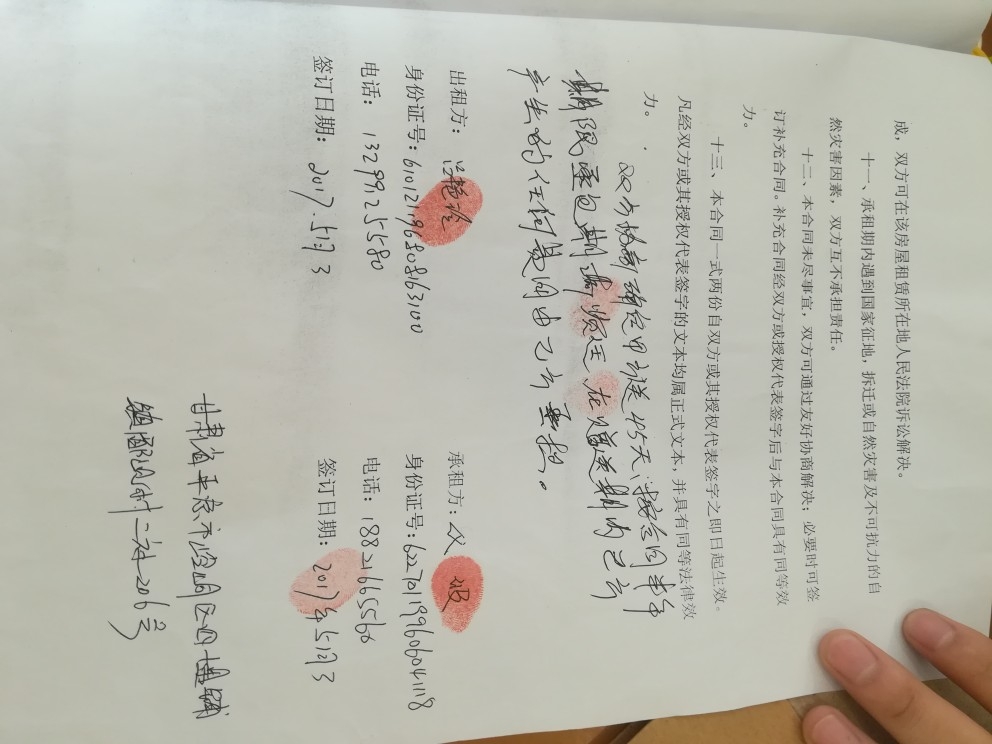 成，双方可在该房屋租赁所在地人民法院诉讼解决。
十一、承租期内遇到国家征地，拆迁或自然灾害及不可抗力的自
然灾害因素，双方互不承担责任。
十二、本合同未尽事宜，双方可通过友好协商解决；必要时可签
订补充合同。补充合同经双方或授权代表签字后与本合同具有同等效
力。
十三、本合同一式两份自双方或其授权代表签字之即日起生效。
凡经双方或其授权代表签字的文本均属正式文本，并具有同等法律效
力。
双方协商 甲方送45天，按合同
期限 在 期内乙方
产生的任何费用由乙方承担。
出租方：
身份证号：610121196808163100
电话：13299255580
签订日期：2017.5月3
承租方：
身份证号：622701199606041118
电话：18821665560
签订日期：2017年5月3
甘肃省平凉市崆峒区四十里铺
镇 村二社206号